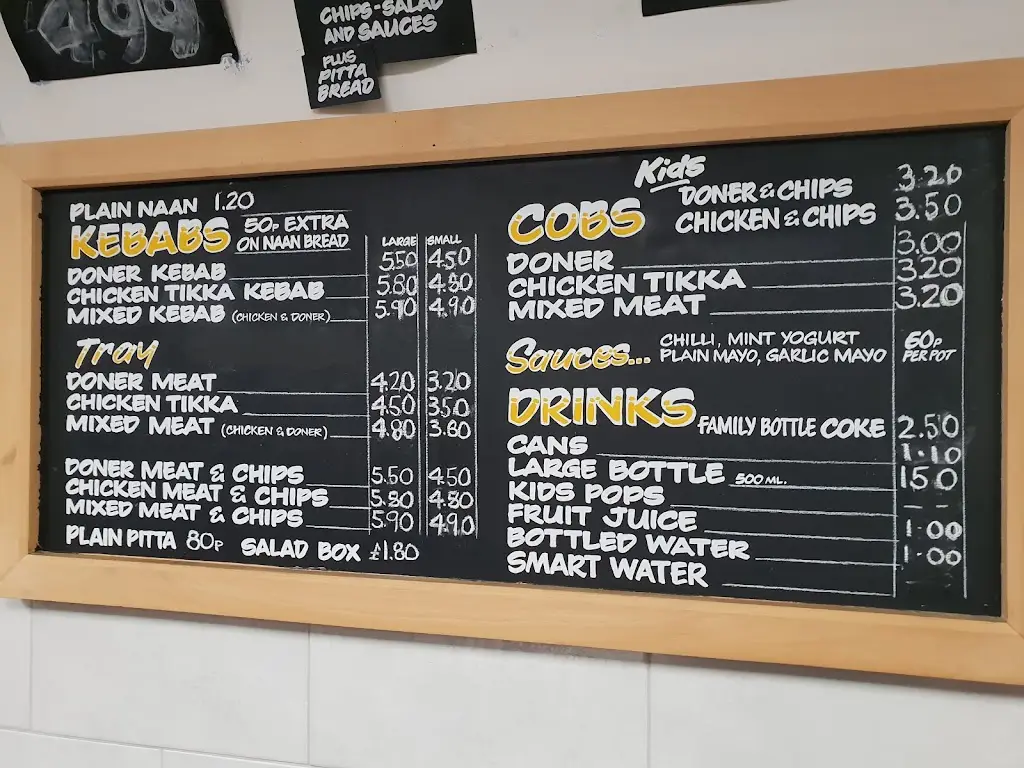 4.99
CHIPS-SALAD
AND SAUCES
PLUS
PITTA
BREAD
PLAIN NAAN 1.20
KEBABS 50P EXTRA
ON NAAN BREAD
LARGE SMALL
DONER KEBAB 5.50 4.50
CHICKEN TIKKA KEBAB 5.80 4.80
MIXED KEBAB (CHICKEN & DONER) 5.90 4.90
Tray
DONER MEAT 4.20 3.20
CHICKEN TIKKA 4.50 3.50
MIXED MEAT (CHICKEN & DONER) 4.80 3.80
DONER MEAT & CHIPS 5.50 4.50
CHICKEN MEAT & CHIPS 5.80 4.80
MIXED MEAT & CHIPS 5.90 4.90
PLAIN PITTA 80P SALAD BOX £1.80
Kids
DONER & CHIPS 3.20
CHICKEN & CHIPS 3.50
COBS
DONER 3.00
CHICKEN TIKKA 3.20
MIXED MEAT 3.20
Sauces... CHILLI, MINT YOGURT
PLAIN MAYO, GARLIC MAYO
60P
PER POT
DRINKS FAMILY BOTTLE COKE 2.50
CANS 1.10
LARGE BOTTLE 500 ML. 150
KIDS POPS --
FRUIT JUICE 1.00
BOTTLED WATER 1.00
SMART WATER